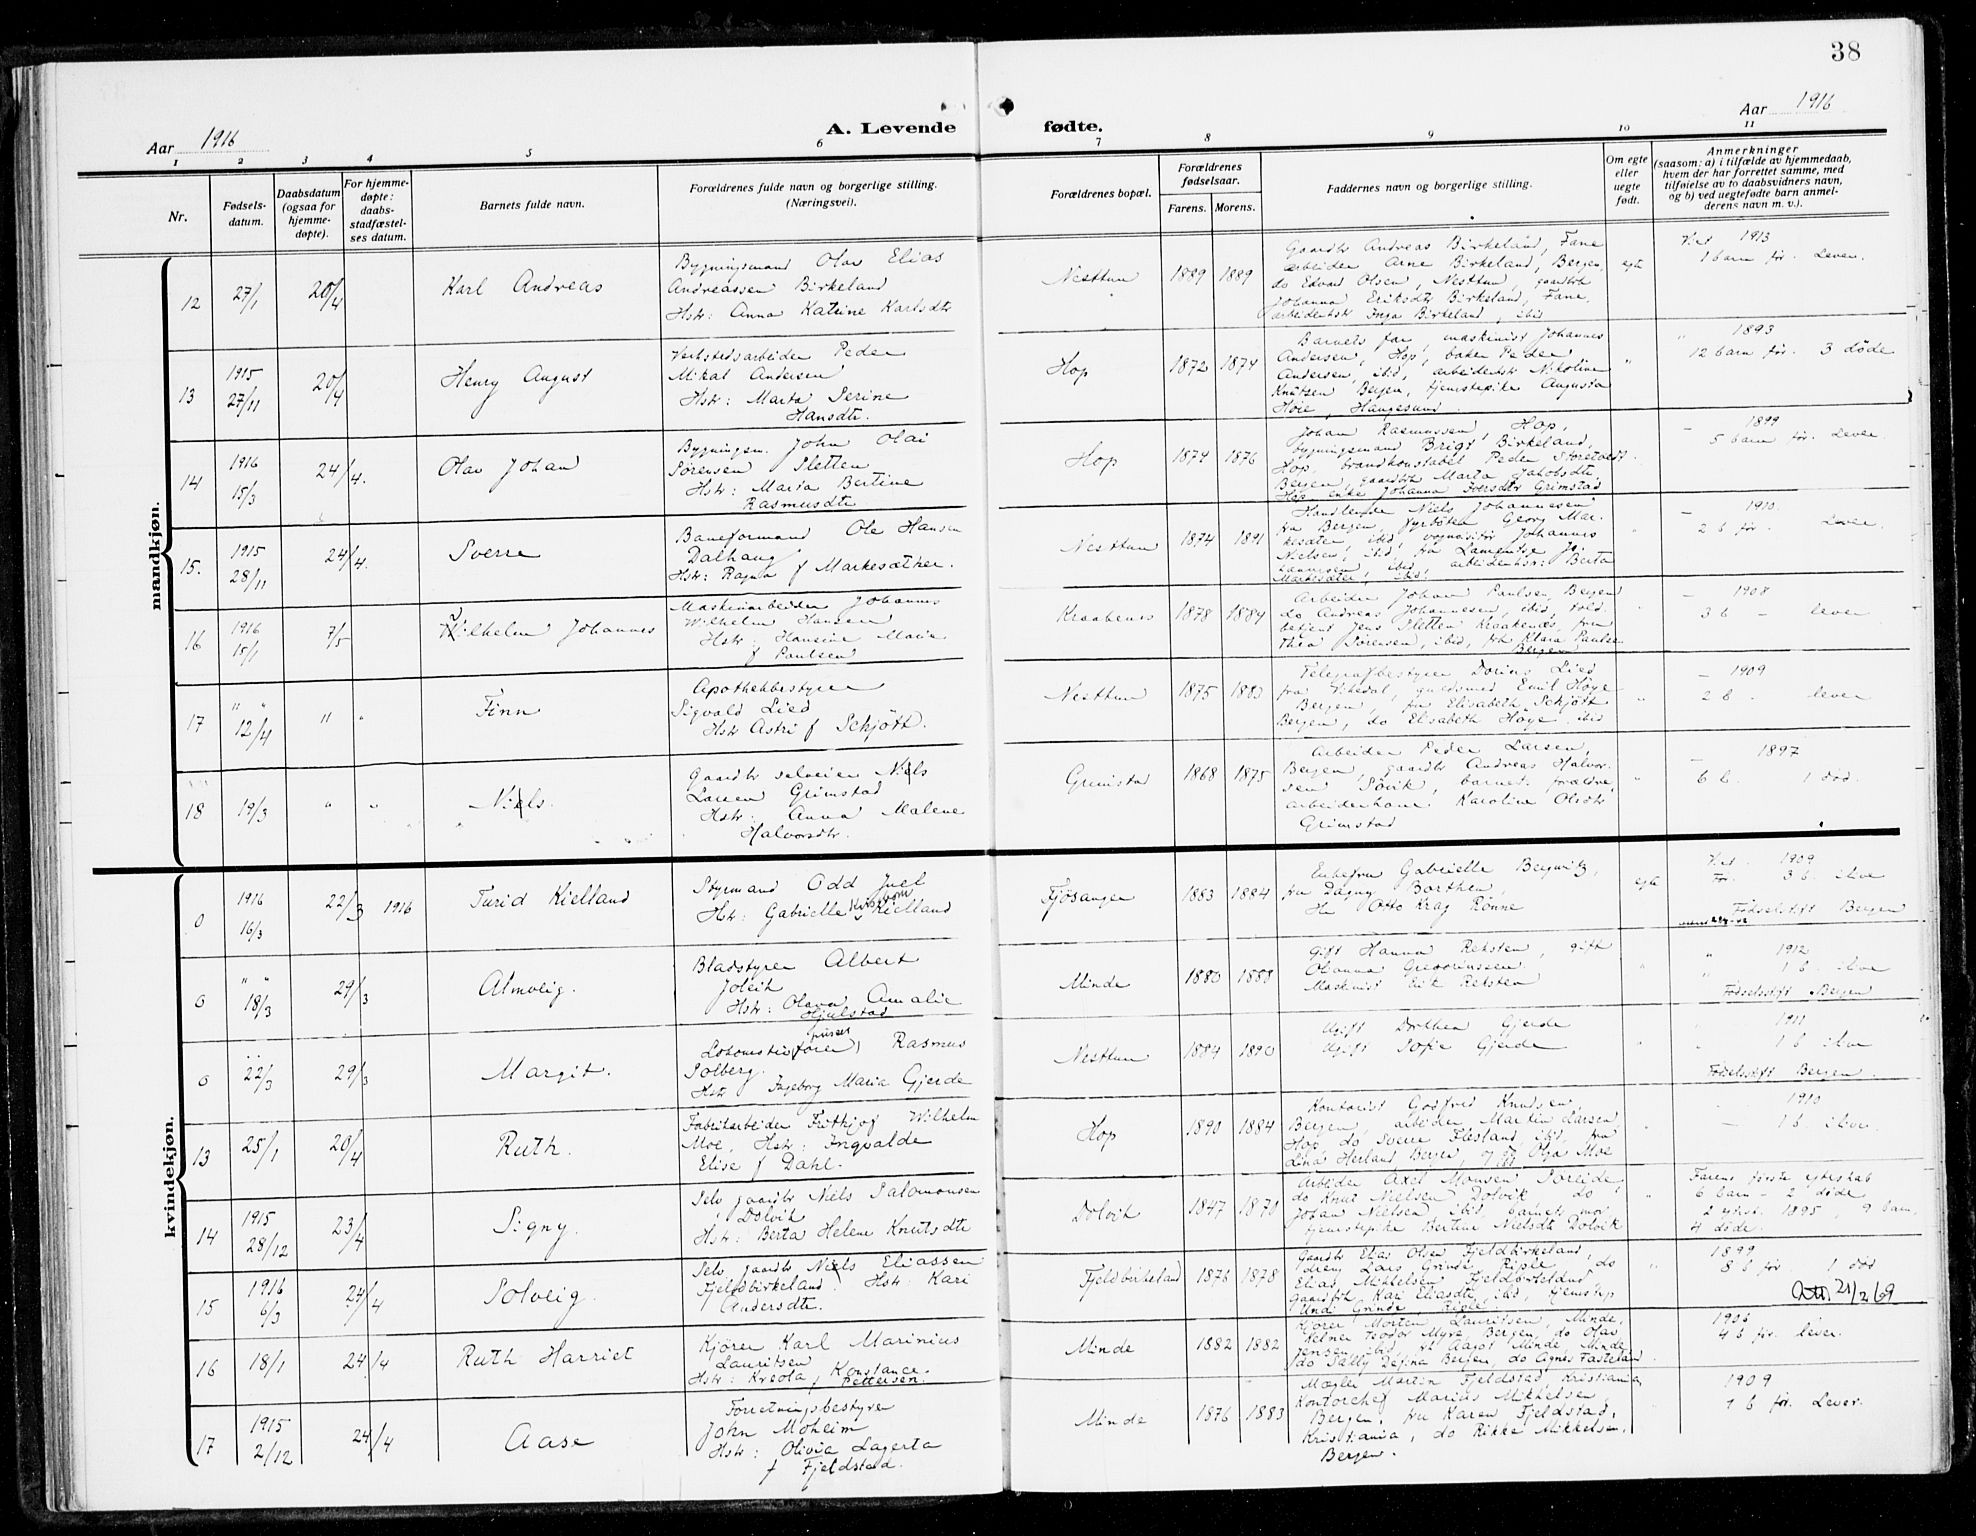 38
Aar 1916
A. Levende fødte.
Aar 1916
1 2 3 4 5 6 7 8 9 10 11
Nr.
Fødsels-
datum.
Daabsdatum
(ogsaa for
hjemme-
døpte).
For hjemme-
døpte:
daabs-
stadfæstel-
ses datum.
Barnets fulde navn.
Forældrenes fulde navn og borgerlige stilling.
(Næringsvei).
Forældrenes bopæl.
Forældrenes
fødselsaar.
Farens. Morens.
Faddernes navn og borgerlige stilling.
Om egte
eller
uegte
født.
Anmerkninger
(saasom: a) i tilfælde av hjemmedaab,
hvem der har forrettet samme, med
tilføielse av to daabsvidners navn,
og b) ved uegtefødte barn anmel-
derens navn m. v.).
mandkjøn.
12 27/1 20/4 Karl Andreas
Bygningsmand Olav Elias
Andreassen Birkeland
Hstr: Anna Katrine Karlsdtr
Nesttun 1889 1889
Gaardbr Andreas Birkeland, Fane
arbeider Arne Birkeland, Bergen,
do Edvard Olsen, Nesttun, gaardbrk
Johanna Eriksdtr Birkeland, Fane,
arbeiderhstr Inga Birkeland, ibid
egte
Viet 1913
1 barn før. Lever.
13 1915 27/11 20/4 Henry August
Verkstedsarbeider Peder
Mikal Andersen
Hstr: Marta Serine
Hansdtr.
Hop 1872 1874
Barnets far, maskinist Johannes
Andersen, Hop, baker Peder
Andersen, ibid, arbeiderhstr Nikoline
Knutsen Bergen, tjenestepike Augusta
Høie, Haugesund.
" 1893
12 barn før. 3 døde
14 1916 15/3 24/4. Olav Johan
Bygningsm. John Olai
Sørensen Sletten
Hstr: Marta Bertine
Rasmusdtr
Hop 1874 1876
Johan Rasmussen, Hop,
bygningsmand Brigt Birkeland,
Hop, brandkonstabel Peder Storetvedt
Bergen, gaardbrk Marta Jakobsdtr
Hop enke Johanna Iversdtr Grimstad
– 1899
5 barn før. Lever.
15. 1915 28/11 24/4. Sverre
Baneformand Ole Hansen
Dalhaug
Hstr: Ragna f Markesæther.
Nesttun 1874 1891
Handlende Niels Johannesen
fra Bergen, fyrbøter Georg Mar-
kesæter ibid, Johannes
Nielsen, ibid, fru
ibid, arbeiderhstr: Berta
Markesæter, ibid.
– 1910.
2 b før. Lever.
16 1916 15/1 7/5 Vilhelm Johannes
Maskinarbeider Johannes
Wilhelm Hansen
Hstr: Hansine Marie
f Paulsen
Kraakenes 1878 1884
Arbeider Johan Paulsen, Bergen
do Andreas Johannesen, ibid, told-
betjent Jens Sletten Kraakenæs, fru
Thea Sørensen, ibid, frk Klara Paulsen
Bergen
– 1908
3 b – lever
17 " " 12/4 " " Finn
Apothekbestyrer
Sigvald Lied
Hstr Astri f Schjøtt.
Nesttun 1875 1883
Telegrafbestyrer Lied
fra Vikedal, guldsmed Emil Høye
Bergen, fru Elisabeth Schjøtt
Bergen, do Elisabeth Høye ibid
– 1909
2 b. lever
18 19/3 " " Niels.
Gaardbr selveier Niels
Larsen Grimstad
Hstr: Anna Malene
Halvorsdtr.
Grimstad 1868 1875
Arbeider Peder Larsen,
Bergen, gaardbr Andreas Halvor-
sen Søvik, barnets forældre,
arbeiderkone Karoline Olsdtr
Grimstad
– 1897
6 b. 1 død.
kvindekjøn.
0 1916 16/3 22/3 1916 Turid Kielland
Styrmand Odd Juel
Hstr: Gabrielle Kielland
Fjøsanger 1883 1884
Enkefru Gabrielle Bergwitz,
fru Dagny Barthen,
Hr Otto Krag Rønne
egte
Viet. 1909
Før. 3 b. ilive
Fødselsstift Bergen
0 " " 18/3 29/3 Almveig.
Bladstyrer Albert
Joleik
Hstr: Olava Amalie
Hjulstad
Minde 1880 1888
Gift Hanna Reksten, gift
Olianna Gregoriussen
Maskinist Erik Reksten
" 1912
" 1 b. ilive
Fødselsstift Bergen
0 22/3 29/3 Margit.
Lokomotivfører Rasmus
Solberg.
Hstr Ingeborg Maria Gjerde
Nesttun 1884 1890
Ugift Dorthea Gjerde
Ugift Sofie Gjerde
1911
1 b ilive
Fødselsstift Bergen.
13 25/1 20/4 Ruth.
Fabrikarbeider Frithjof Wilhelm
Moe, Hstr: Ingvalde
Elise f Dahl.
Hop 1890 1884
Kontorist Godfred Knudsen,
Bergen, arbeider Martin Larsen
Hop do Sverre Flesland, ibid, fru
Lina Herland Bergen, og Olga Moe
1910
– 1 b. ilive.
14 1915 28/12 23/4 Signy.
Selv gaardbr Niels Salomonsen
Dolvik
Hstr: Berta Helene Knutsdtr
Dolvik 1847 1870
Arbeider Axel Monsen Søreide,
do Knut Nielsen Dolvik do
Johan Nielsen ibid, barnets mor,
tjenestepike Bertine Nielsdt Dolvik
Farens første egteskab
6 barn – 2 døde
2 1895, 9 barn,
4 døde.
15 1916 6/3 24/4 Solveig.
Selv gaardbr Niels Eliassen
Fjeldbirkeland. Hstr: Kari
Andersdtr.
Fjeldbirkeland 1876 1878
Gaardbr Elias Olsen Fjeldbirkeland,
dreng Lars Grinde Riple, do
Elias Mikkelsen Fjeldbirkeland
Gaardbrk Kari Eliasdtr ibid, tjenestep
Grinde, Riple
1899
8 b før. 1 død
21/2 69
16 18/1 24/4 Ruth Harriet
Kjører Karl Marinius
Lauritsen
Hstr: Kreola, Konstance
Pettersen.
Minde 1882 1882
Kjører Morten Lauritsen, Minde,
Kelner Teodor Myre, Bergen, do Olav
Jensen ibid, fr Aagot Minde, Minde
do Sally Bergen, do Agnes Fasteland.
1906
4 b før. lever.
17 1915 2/12 24/4 Aase
Forretningsbestyrer
John Moheim
Hstr: Olivia Lagerta
f Fjeldstad.
Minde 1876 1883
Mægler Martin Fjeldstad Kristiania,
Kontorchef Marius Mikkelsen,
Bergen, fru Karen Fjeldstad,
Kristiania, do Rikke Mikkelsen,
Bergen.
1909
1 b før. Lever.